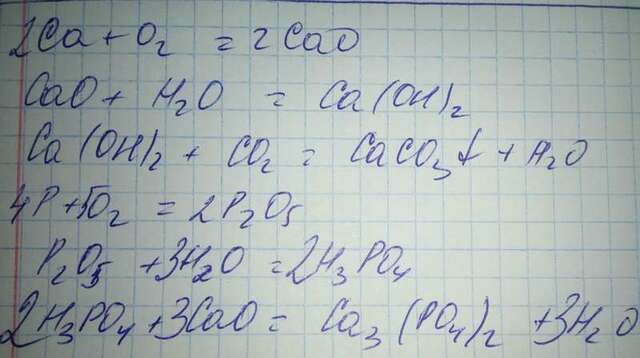 2Ca + O₂ = 2CaO
CaO + H₂O = Ca(OH)₂
Ca(OH)₂ + CO₂ = CaCO₃↓ + H₂O
4P + 5O₂ = 2P₂O₅
P₂O₅ + 3H₂O = 2H₃PO₄
2H₃PO₄ + 3CaO = Ca₃(PO₄)₂ + 3H₂O